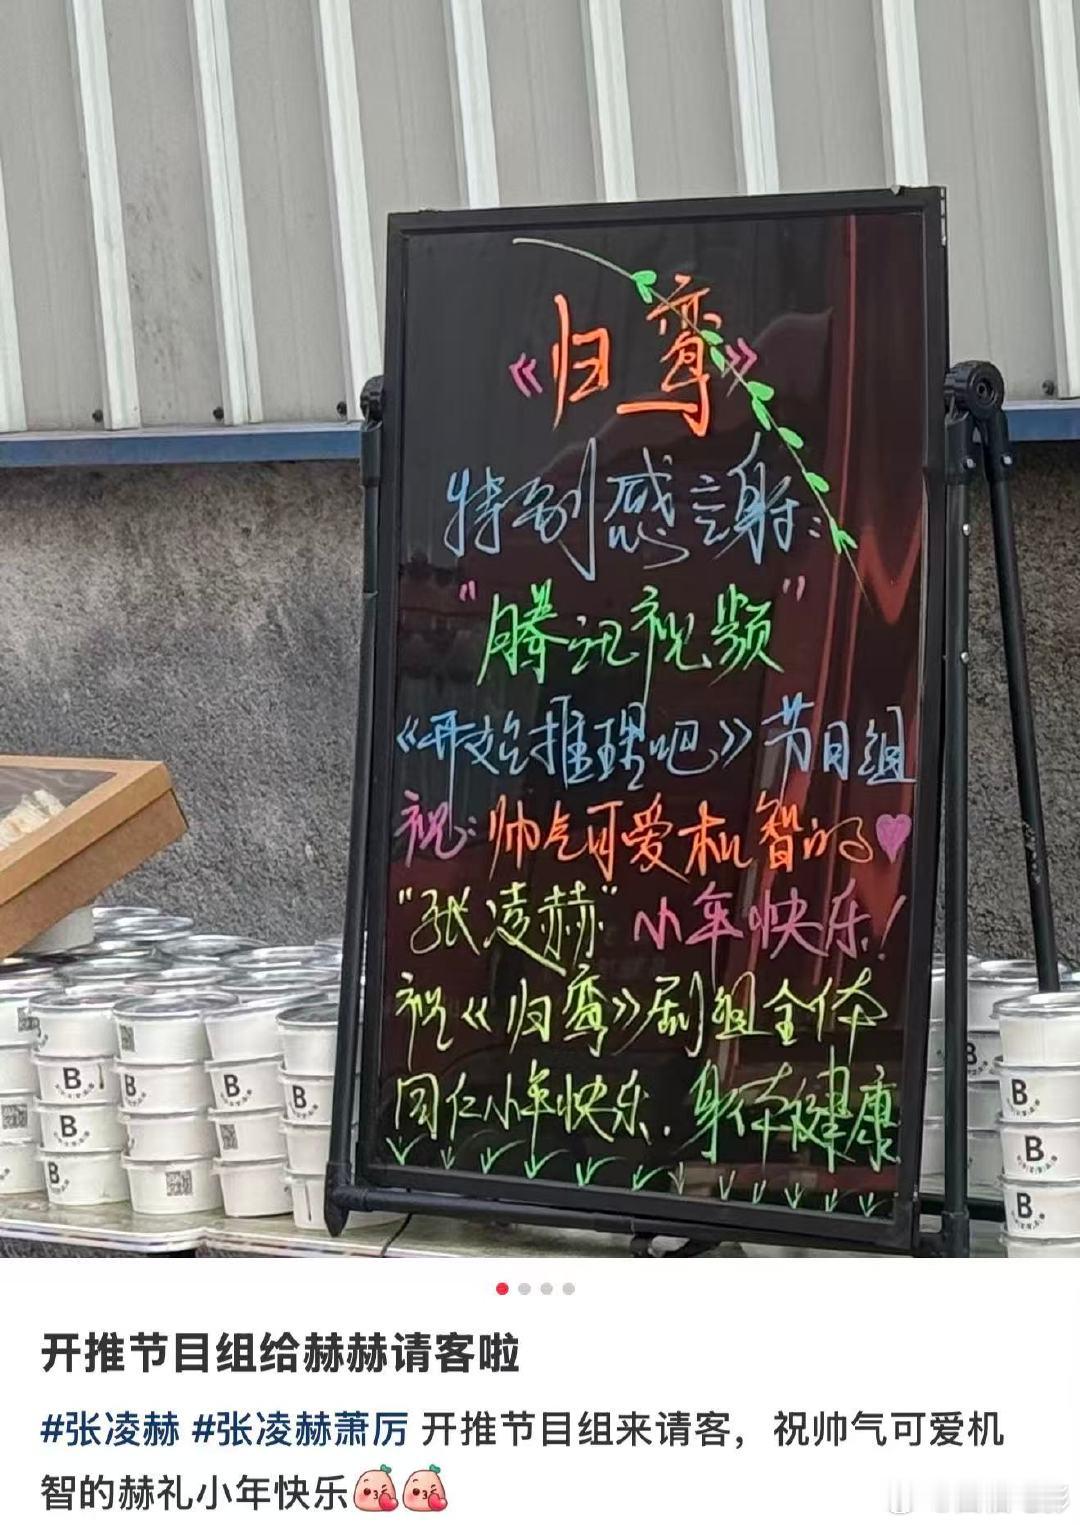 《归鸾》
特别感謝：
"腾讯视频"
《开始推理吧》节目组
祝：帅气可爱机智的
"张凌赫"小年快乐！
祝《归鸾》剧组全体
同仁小年快乐.身体健康
B.
B.
B.
B.
B.
B.
B.
B.
B.
B.
开推节目组给赫赫请客啦
#张凌赫 #张凌赫萧厉 开推节目组来请客，祝帅气可爱机
智的赫礼小年快乐